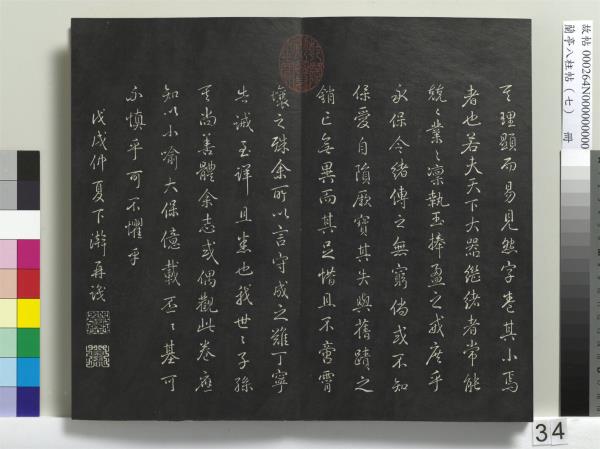 其理顯而易見然字卷其小焉
者也若夫天下大器繼緒者常能
兢〻業〻凜執玉捧盈之戒庶乎
永保令緒傳之無窮倘或不知
保愛自隳厥寶其失與舊蹟之
銷亡無異而其足惜且不啻霄
壤之殊余所以言守成之難丁寧
告誡至詳且悉也我世〻子孫
其尚善體余志或偶觀此卷應
知以小喻大保億載丕〻基可
不慎乎可不懼乎
戊戌仲夏下澣再識
故帖 000264N000000000
蘭亭八柱帖（七） 冊
34